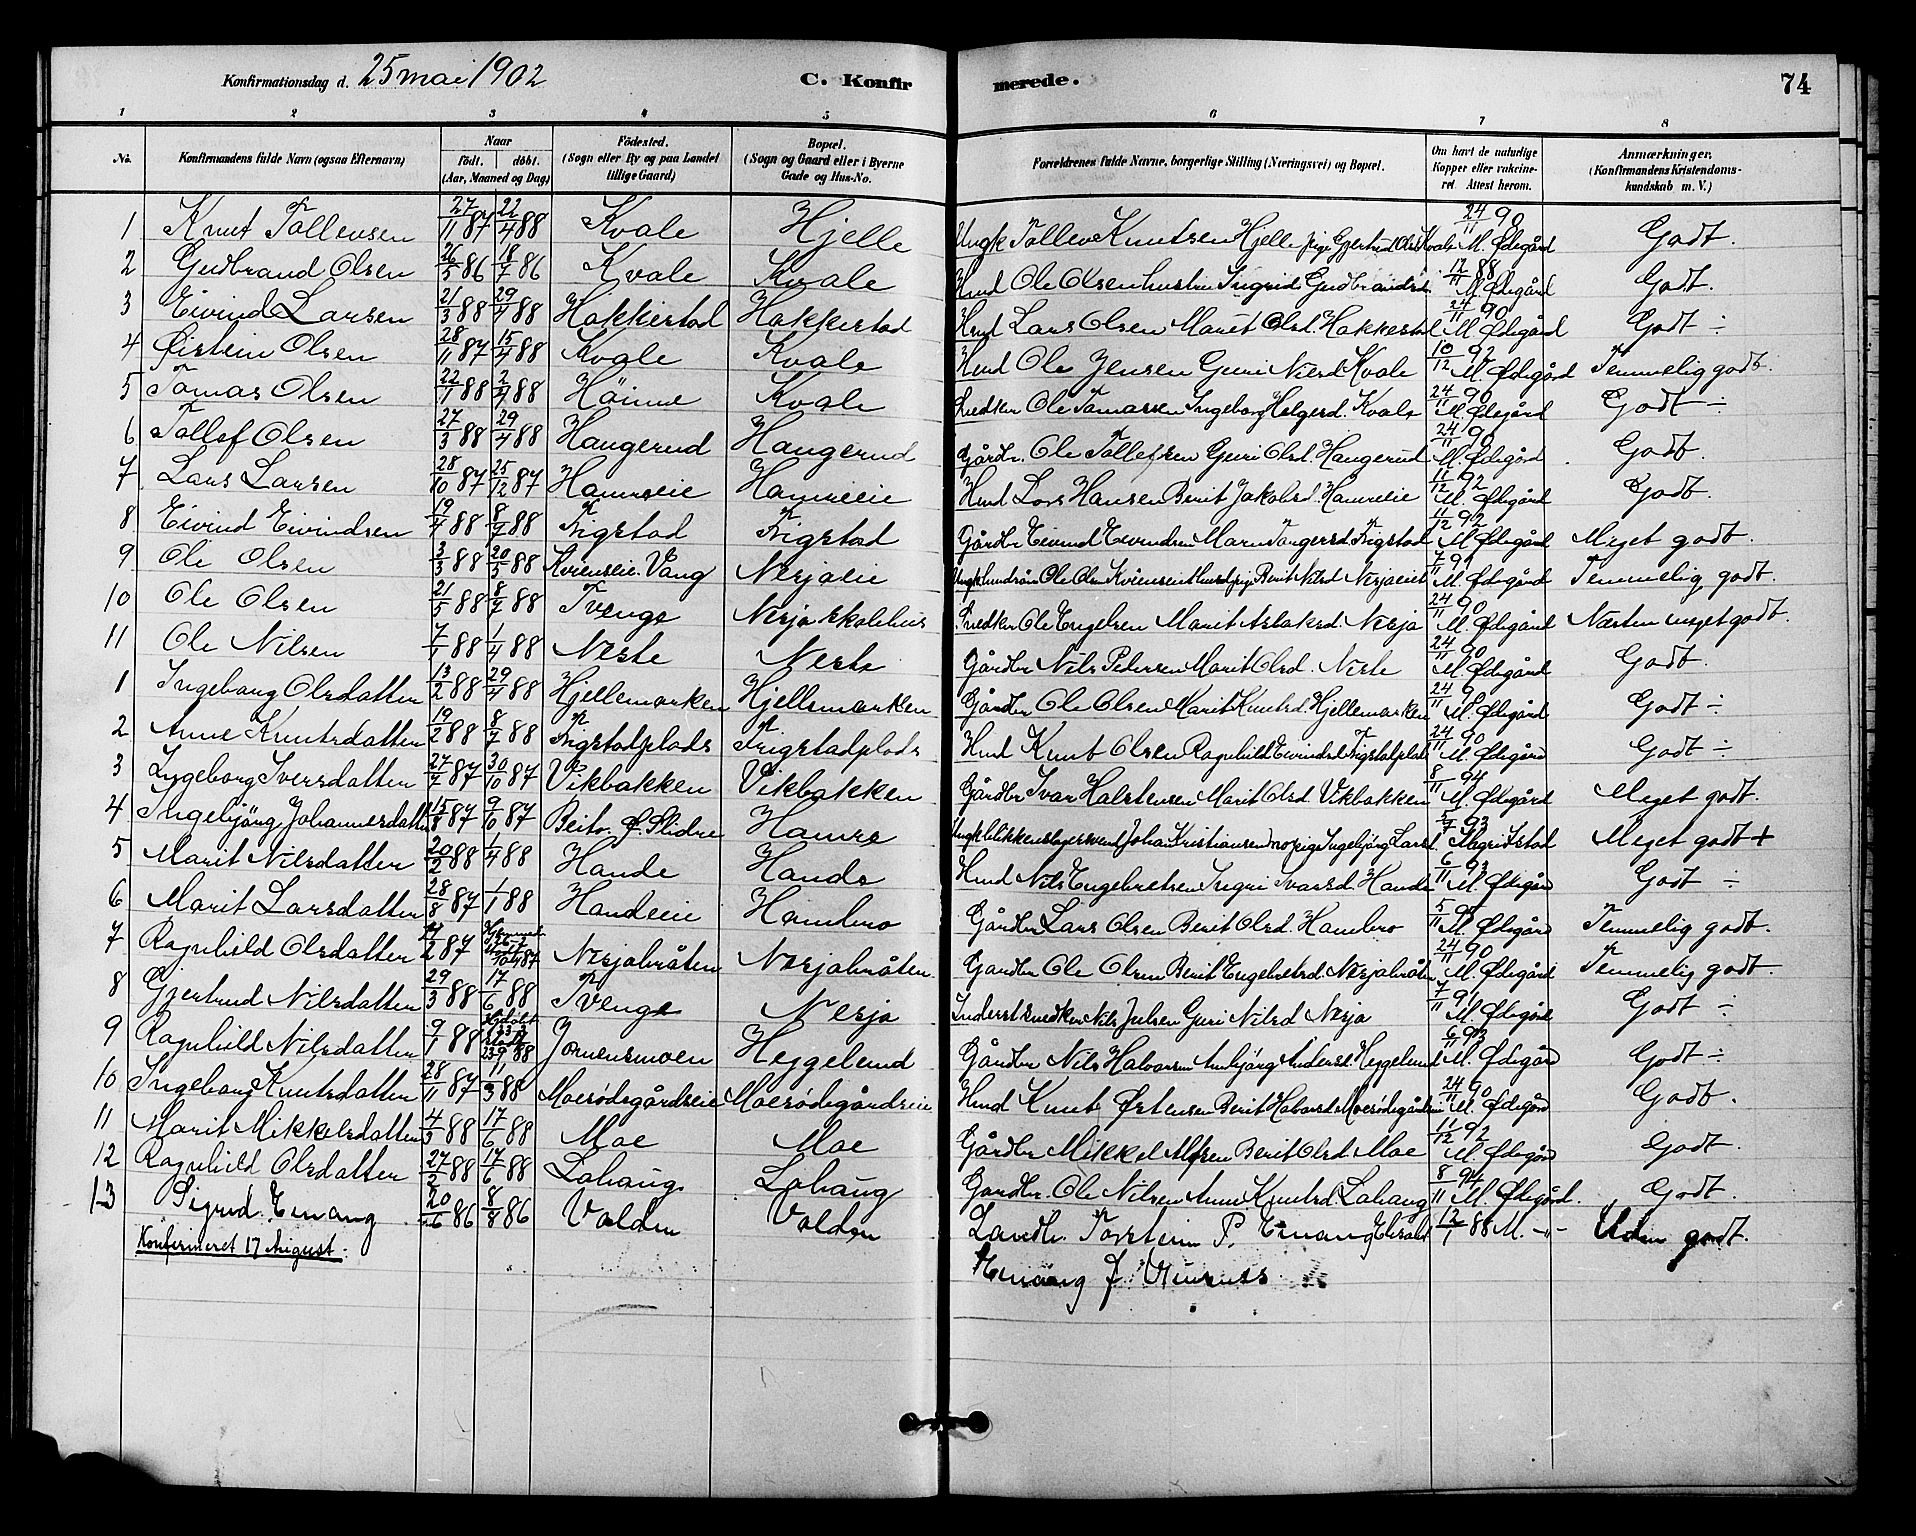 Konfirmationsdag d. 25 mai 1902 C. Konfir merede. 74
1 2 3 4 5 6 7 8
No. Konfirmandens fulde Navn (ogsaa Efternavn) Naar födt. döbt. (Aar, Maaned og Dag) Födested. (Sogn eller By og paa Landet tillige Gaard) Bopæl. (Sogn og Gaard eller i Byerne Gade og Hus-No. Forældrenes fulde Navne, borgerlige Stilling (Næringsvei) og Bopæl. Om havt de naturlige Kopper eller vakcineret. Attest herom. Anmærkninger. (Konfirmandens Kristendomskundskab m. V.)
1 Knut Tollevsen 27/11 87 22/4 88 Kvale Hjelle Ungk Tollev Knutsen Hjelle pige Gjertrud Olsd Kvale 24/11 90 M. Ødegård Godt.
2 Gudbrand Olsen 26/5 86 18/7 86 Kvale Kvale Hmd Ole Olsen hustru Ingrid Gudbrandsd. 12/11 88 M. Ødegård Godt.
3 Eivind Larsen 21/3 88 29/4 88 Hakkestad Hakkestad Hmd Lars Olsen Marit Olsd. Hakkestad 24/11 90 M. Ødegård Godt ÷
4 Øistein Olsen 28/11 87 15/4 88 Kvale Kvale Hmd Ole Jensen Guri Nilsd Kvale 10/12 92 M. Ødegård Temmelig godt.
5 Tomas Olsen 22/1 88 2/4 88 Höime Kvale Snedker Ole Tomassen Ingeborg Helgesd. Kvale 24/11 90 M. Ødegård Godt ÷
6 Tollef Olsen 27/3 88 29/4 88 Haugerud Haugerud Gårdbr. Ole Tollefsen Guri Olsd. Haugerud 24/11 90 M. Ødegård Godt.
7 Lars Larsen 28/10 87 25/12 87 Hamreeie Hamreeie Hmd Lars Hansen Berit Jakobsd. Hamreeie 11/12 92 M. Ødegård Godt.
8 Eivind Eivindsen 19/4 88 8/7 88 Frigstad Frigstad Gårdbr Eivind Eivindsen Marn Torgersd. Frigstad 11/12 92 M. Ødegård Meget godt.
9 Ole Olsen 3/3 88 20/5 88 Kvienseie. Vang Nesjaeie Ole Olsen Berit Nilsd Nesjaeiet 7/11 91 M. Ødegård Temmelig godt.
10 Ole Olsen 21/5 88 8/7 88 Tvenge Nesja Skolehus Snedker Ole Engelsen Marit Aslaksd. Nesja 24/11 90 M. Ødegård Næsten meget godt.
11 Ole Nilsen 7/1 88 1/4 88 Neste Neste Gårdbr Nils Pedersen Marit Olsd. Neste 24/11 90 M. Ødegård Godt.
1 Ingeborg Olsdatter 13/2 88 29/4 88 Hjellemarken Hjellemarken Gårdbr Ole Olsen Marit Knutsd. Hjellemarken 24/11 90 M. Ødegård Godt ÷
2 Anne Knutsdatter 19/2 88 8/7 88 Frigstadplads Frigstadplads Hmd Knut Olsen Ragnhild Eivindsd Frigstadplads 24/11 90 M. Ødegård Godt ÷
3 Ingeborg Iversdatter 27/7 87 30/10 87 Vikbakken Vikbakken Gårdbr Ivar Halstensen Marit Olsd. Vikbakken 8/11 94 M. Ødegård Meget godt.
4 Ingebjörg Johannesdatter 15/8 87 9/10 87 Beito. Ø. Slidre Hamre Ungk blikkenslagersvend Johan Kristiansen pige Ingebjörg Larsd. 5/7 93 Meget godt +
5 Marit Nilsdatter 20/2 88 1/4 88 Hande Hande Hmd Nils Engebretsen Ingri Ivarsd. Hande 6/11 93 M. Ødegård Godt ÷
6 Marit Larsdatter 28/8 87 1/1 88 Handeeie Hambro Gårdbr Lars Olsen Berit Olsd. Hambro 5/11 95 M. Ødegård Temmelig godt.
7 Ragnhild Olsdatter /2 87 Nesjabråten Nesjabråten Gårdbr Ole Olsen Berit Engebretsd. Nesjabråten 24/11 90 M. Ødegård Temmelig godt.
8 Gjertrud Nilsdatter 29/3 88 17/6 88 Tvenge Nesja Inderst snedker Nils Juelsen Guri Nilsd Nesja 7/11 91 M. Ødegård Godt ÷
9 Ragnhild Nilsdatter 9/1 88 Heggelund Gårdbr Nils Halvorsen Anbjörg Andersd. Heggelund 6/11 93 M. Ødegård Godt ÷
10 Ingeborg Knutsdatter 28/11 87 11/3 88 Moesødegårdseie Moesødegårdseie Hmd Knut Østensen Berit Halvorsd Moesødegårdseie 24/11 90 M. Ødegård Godt.
11 Marit Mikkelsdatter 4/3 88 17/6 88 Moe Moe Gårdbr Mikkel Olsen Berit Olsd. Moe 11/12 92 M. Ødegård Godt.
12 Ragnhild Olsdatter 27/2 88 17/6 88 Lohaug Lohaug Gårdbr. Ole Nilsen Anne Knutsd. Lohaug 8/11 94 M. Ødegård. Godt.
13 Sigrid Emang 20/6 86 8/8 86 Volden Volden Landh. Torstein P. Emang 12/1 88 M. -"- Uden godt.
Konfirmeret 17 August.